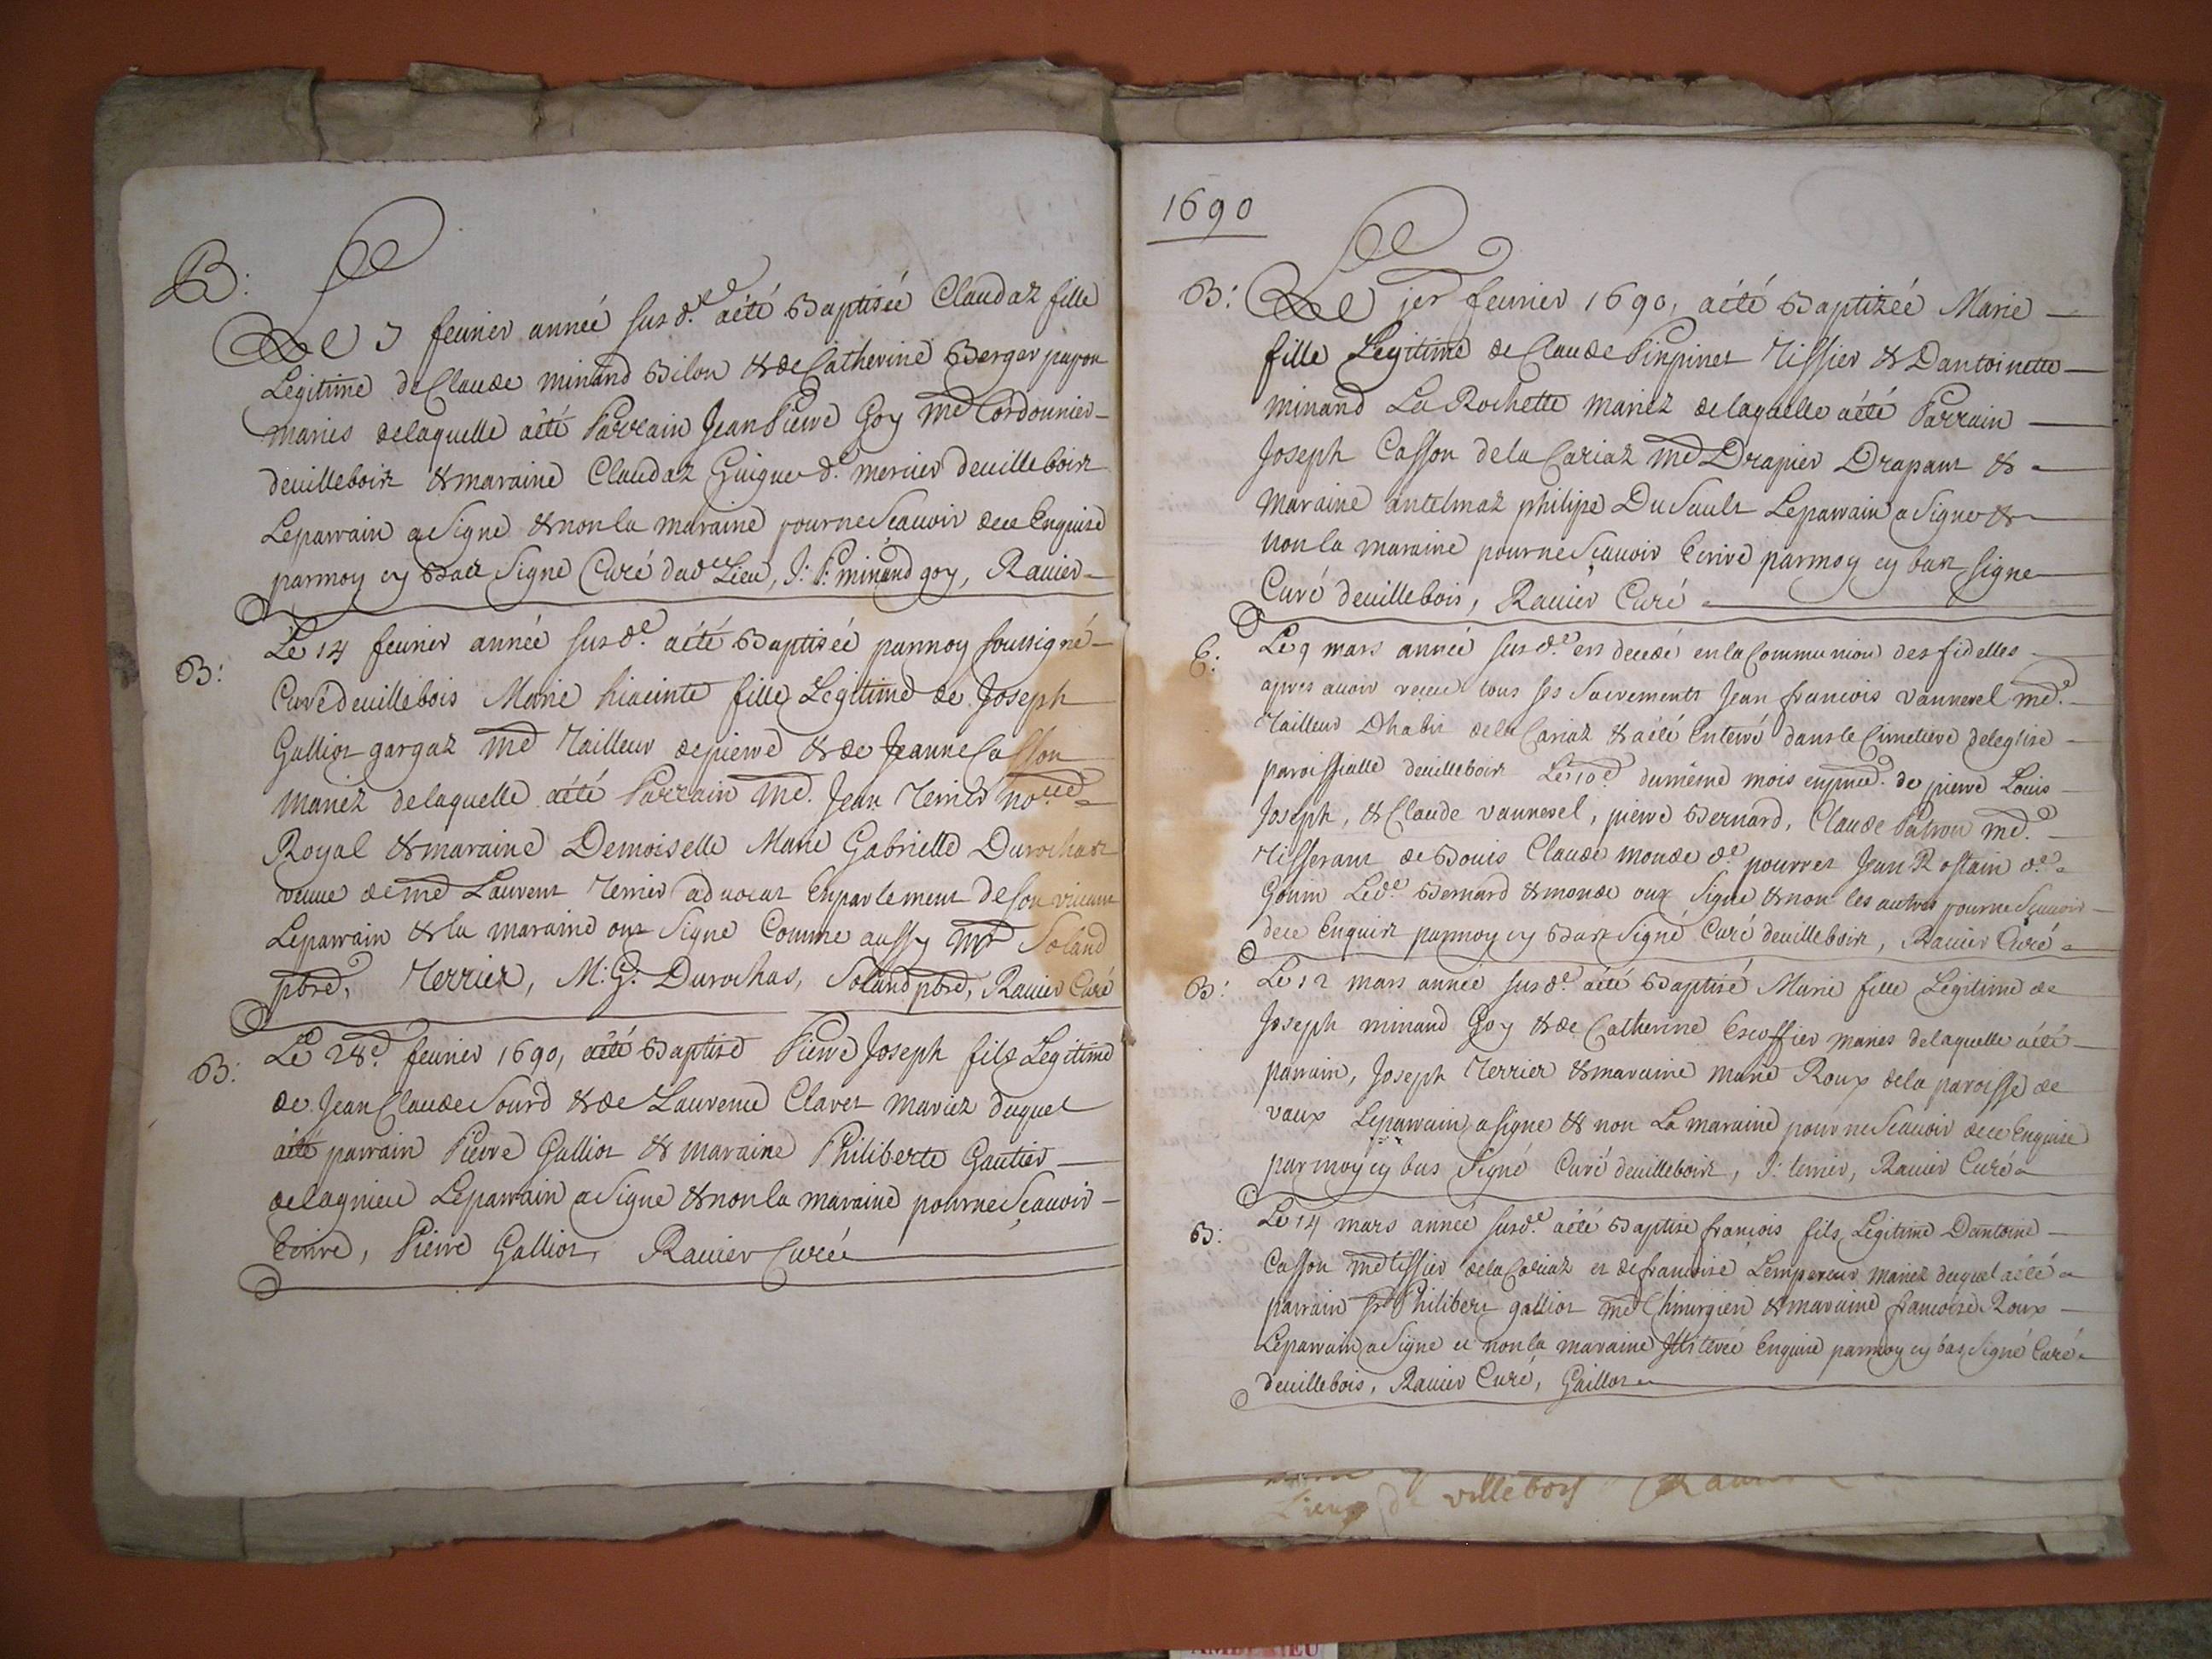 B:
Le 3 feurier année susd.e aété Baptiséé Claudaz fille
Legitime de Claude minand Bilon & de Catherine Berger papon
maries delaquelle aété Parrain Jean Pierre Goy md Cordonnier
deuillebois & maraine Claudaz Guigue d.e mercier deuillebois
Leparrain a Signe & non la maraine pour ne Scauoir dece Enquise
parmoy cy Bas Signe Curé dud Lieu, J: P: minand goy, Rauier
B:
Le 14 feurier année susd.e aété Baptiséé parmoy soussigné
Curé deuillebois Marie hiacinte fille Legitime de Joseph
Galliot gargaz md Tailleur depierre & de Jeanne Casson
Mariez delaquelle aété Parrain md. Jean Terrier no.re
Royal & maraine Demoiselle Marie Gabrielle Durochat
veuue de md Laurent Terrier aduocat Enparlement de son viuant
Leparrain & la maraine ont Signe Comme aussy mr Soland
pbre, Terrier, M: G: Durochas, Soland pbre, Rauier Curé
B:
Le 28e. feurier 1690, aété Baptisé Pierre Joseph fils Legitime
de Jean Claude Sourd & de Laurence Claret mariez duquel
aété parrain Pierre Galliot & maraine Philiberte Gautier
delagnieu Leparrain a Signe & non la maraine pour ne Scauoir
Ecrire, Pierre Galliot, Rauier Curé
1690
B: Le jer feurier 1690, aété Baptizéé Marie
fille Legitime de Claude Pinpinet Tissier & Dantoinette
minand La Rochette mariez delaquelle aété Parrain
Joseph Casson dela Cariaz md Drapier Drapant &
maraine antelmaz philipe Du Sault Leparrain a Signe &
non la maraine pour ne Scauoir Ecrire parmoy cy bas signe
Curé deuillebois, Rauier Curé
E: Le 9 mars année susd.e est decedé enla Communion des fidelles
apres auoir reçeu tous ses Sacrements Jean francois vannerel md.
Tailleur Dhabit dela Cariaz & aété Enterré dans le Cimetiere deleglise
paroissialle deuillebois Le 10e dumême mois en pnce. de pierre Louis
Joseph, & Claude vannerel, pierre Bernard, Claude Patron md.
Tisserant de Bouis Claude monde d.e pourret Jean Rostain d.e
Gonin Led.e Bernard & monde ont Signe & non les autres pour ne Scauoir
dece Enquis parmoy cy Bas Signé Curé deuillebois, Rauier Curé
B: Le 12 mars année susd.e aété Baptisé Marie fille Legitime de
Joseph minand Goy & de Catherine Escoffier maries delaquelle aété
parrain, Joseph Terrier & maraine marie Roux dela paroisse de
vaux Leparrain a signe & non La maraine pour ne Scauoir dece Enquise
par moy cy bas Signé Curé deuillebois, J: terrier, Rauier Curé
B: Le 14 mars année susd.e aété Baptise francois fils Legitime Dantoine
Casson md tissier dela Cariaz et de francoise Lempereur mariez duquel aété
parrain sr Philibert galliot md Chirurgien & maraine francoise Roux
Leparrain a Signe et non la maraine Illiteréé Enquise parmoy cy bas Signé Curé
deuillebois, Rauier Curé, Gaillot
Lieu de villeboys Rauier